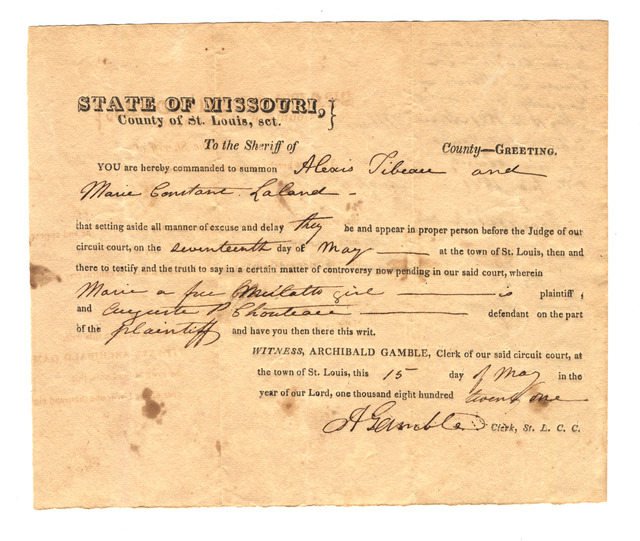 STATE OF MISSOURI, }
County of St. Louis, sct.
To the Sheriff of County—GREETING.
YOU are hereby commanded to summon Alexis Tibeau and
Marie Constant Laland -
that setting aside all manner of excuse and delay they be and appear in proper person before the Judge of our
circuit court, on the seventeenth day of May — at the town of St. Louis, then and
there to testify and the truth to say in a certain matter of controversy now pending in our said court, wherein
Marie a free Mulatto girl — is plaintiff,
and Auguste P Chouteau — defendant on the part
of the plaintiff and have you then there this writ.
WITNESS, ARCHIBALD GAMBLE, Clerk of our said circuit court, at
the town of St. Louis, this 15 day of May in the
year of our Lord, one thousand eight hundred twenty one
A Gamble Clerk, St. L. C. C.